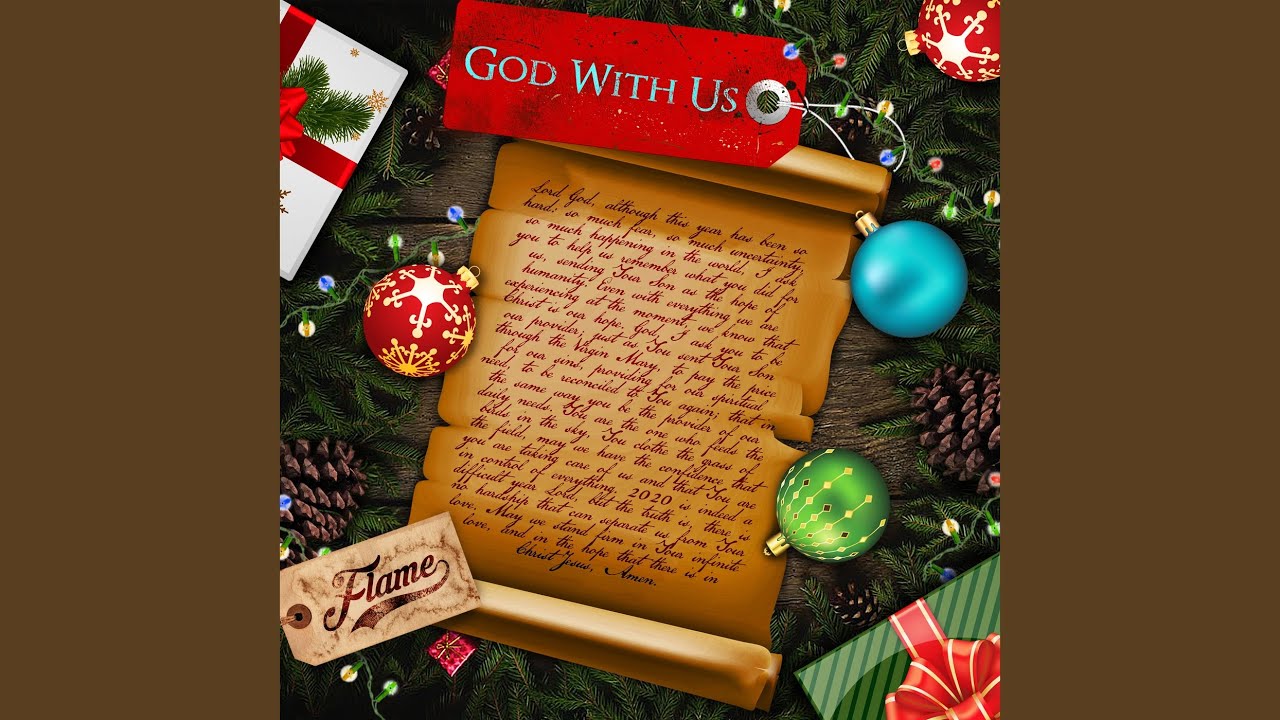 GOD WITH US
Lord God, although this year has been so
hard; so much fear, so much uncertainty,
so much happening in the world, I ask
you to help us remember what you did for
us, sending Your Son as the hope of
humanity. Even with everything we are
experiencing at the moment, we know that
Christ is our hope. God, I ask you to be
our provider; just as You sent Your Son
through the Virgin Mary, to pay the price
for our sins, providing for our spiritual
need, to be reconciled to You again; that in
the same way you be the provider of our
daily needs. You are the one who feeds the
birds in the sky, You clothe the grass of
the field, may we have the confidence that
you are taking care of us and that You are
in control of everything. 2020 is indeed a
difficult year Lord, but the truth is, there is
no hardship that can separate us from Your
love. May we stand firm in Your infinite
love, and in the hope that there is in
Christ Jesus, Amen.
Flame